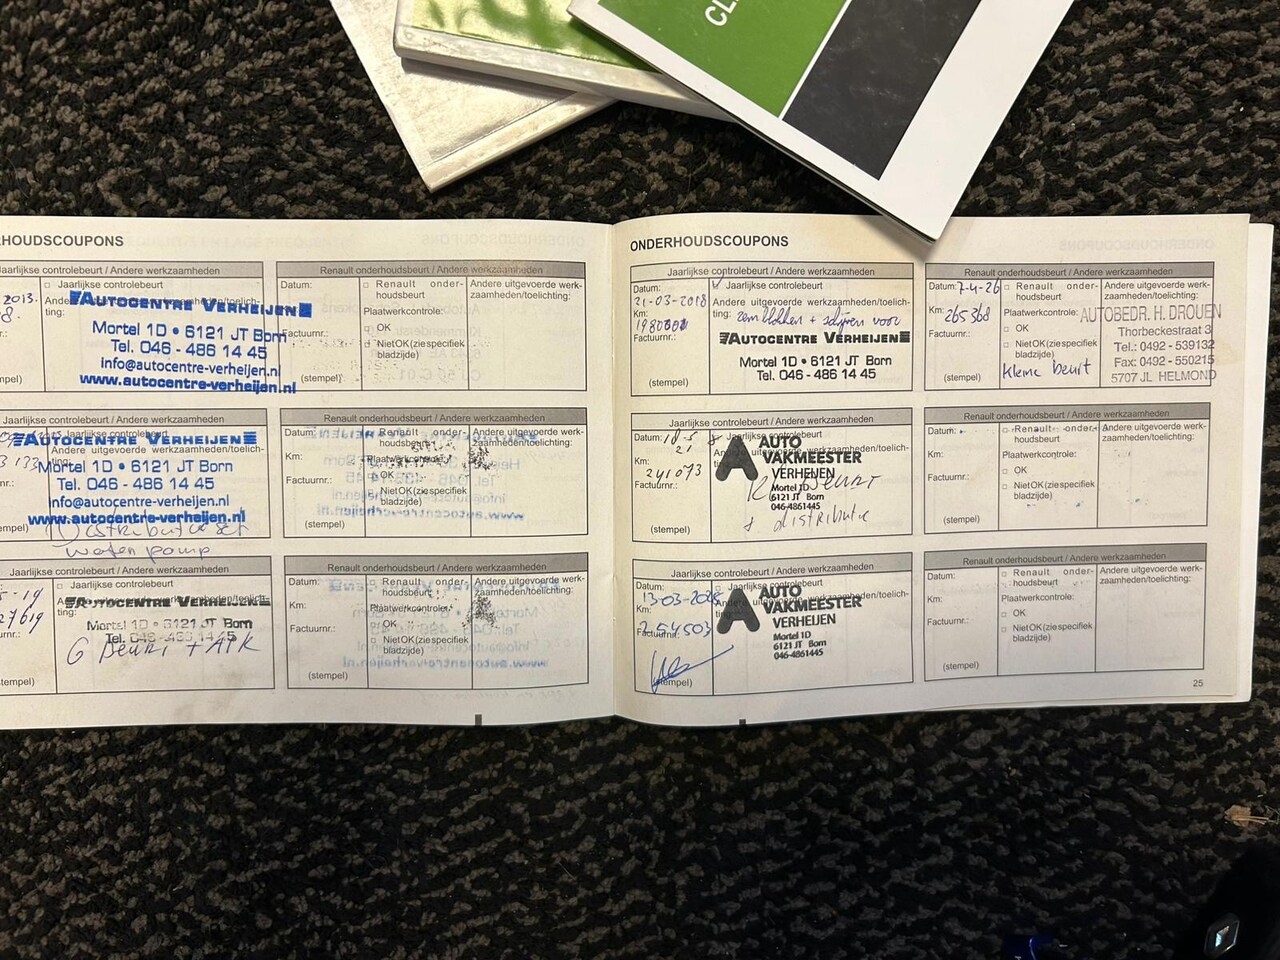 CL
HOUDSCOUPONS
aarlijkse controlebeurt / Andere werkzaamheden
2013.
Jaarlijkse controlebeurt
AUTOCENTRE VERHEIJEN
Mortel 1D • 6121 JT Born
Tel. 046 - 486 14 45
info@autocentre-verheijen.nl
www.autocentre-verheijen.nl
Renault onderhoudsbeurt / Andere werkzaamheden
Datum:
Km:
Factuurnr.:
(stempel)
Renault onder-
houdsbeurt
Plaatwerkcontrole:
OK
Niet OK (zie specifiek
bladzijde)
Andere uitgevoerde werk-
zaamheden/toelichting:
Jaarlijkse controlebeurt / Andere werkzaamheden
AUTOCENTRE VERHEIJEN
Andere uitgevoerde werkzaamheden/toelich-
ting:
Mortel 1D • 6121 JT Born
Tel. 046 - 486 14 45
info@autocentre-verheijen.nl
www.autocentre-verheijen.nl
Distributie set
waterpomp
Renault onderhoudsbeurt / Andere werkzaamheden
Datum:
Km:
Factuurnr.:
(stempel)
Renault onder-
houdsbeurt
Plaatwerkcontrole:
OK
Niet OK (zie specifiek
bladzijde)
Andere uitgevoerde werk-
zaamheden/toelichting:
Jaarlijkse controlebeurt / Andere werkzaamheden
Jaarlijkse controlebeurt
AUTOCENTRE VERHEIJEN
Mortel 1D • 6121 JT Born
Tel. 046 - 486 14 45
G Beurt + APK
Renault onderhoudsbeurt / Andere werkzaamheden
Datum:
Km:
Factuurnr.:
(stempel)
Renault onder-
houdsbeurt
Plaatwerkcontrole:
OK
Niet OK (zie specifiek
bladzijde)
Andere uitgevoerde werk-
zaamheden/toelichting:
ONDERHOUDSCOUPONS
Jaarlijkse controlebeurt / Andere werkzaamheden
Datum:
21-03-2018
Km:
Factuurnr.:
(stempel)
Jaarlijkse controlebeurt
Andere uitgevoerde werkzaamheden/toelich-
ting:
remblokken + schijven voor
AUTOCENTRE VERHEIJEN
Mortel 1D • 6121 JT Born
Tel. 046 - 486 14 45
Renault onderhoudsbeurt / Andere werkzaamheden
Datum: 7-4-26
Km:
265368
Factuurnr.:
(stempel)
Renault onder-
houdsbeurt
Plaatwerkcontrole:
OK
Niet OK (zie specifiek
bladzijde)
kleine beurt
AUTOBEDR. H. DROUEN
Thorbeckestraat 3
Tel.: 0492 - 539132
Fax: 0492 - 550215
5707 JL HELMOND
Jaarlijkse controlebeurt / Andere werkzaamheden
Datum:
Km:
241073
Factuurnr.:
(stempel)
Jaarlijkse controlebeurt
A AUTO
VAKMEESTER
VERHEIJEN
Mortel 1D
6121 JT Born
046-4861445
Beurt
+ distributie
Renault onderhoudsbeurt / Andere werkzaamheden
Datum:
Km:
Factuurnr.:
(stempel)
Renault onder-
houdsbeurt
Plaatwerkcontrole:
OK
Niet OK (zie specifiek
bladzijde)
Andere uitgevoerde werk-
zaamheden/toelichting:
Jaarlijkse controlebeurt / Andere werkzaamheden
Datum:
Km:
254503
Factuurnr.:
(stempel)
Jaarlijkse controlebeurt
Andere uitgevoerde werkzaamheden/toelich-
ting:
A AUTO
VAKMEESTER
VERHEIJEN
Mortel 1D
6121 JT Born
046-4861445
Renault onderhoudsbeurt / Andere werkzaamheden
Datum:
Km:
Factuurnr.:
(stempel)
Renault onder-
houdsbeurt
Plaatwerkcontrole:
OK
Niet OK (zie specifiek
bladzijde)
Andere uitgevoerde werk-
zaamheden/toelichting:
25